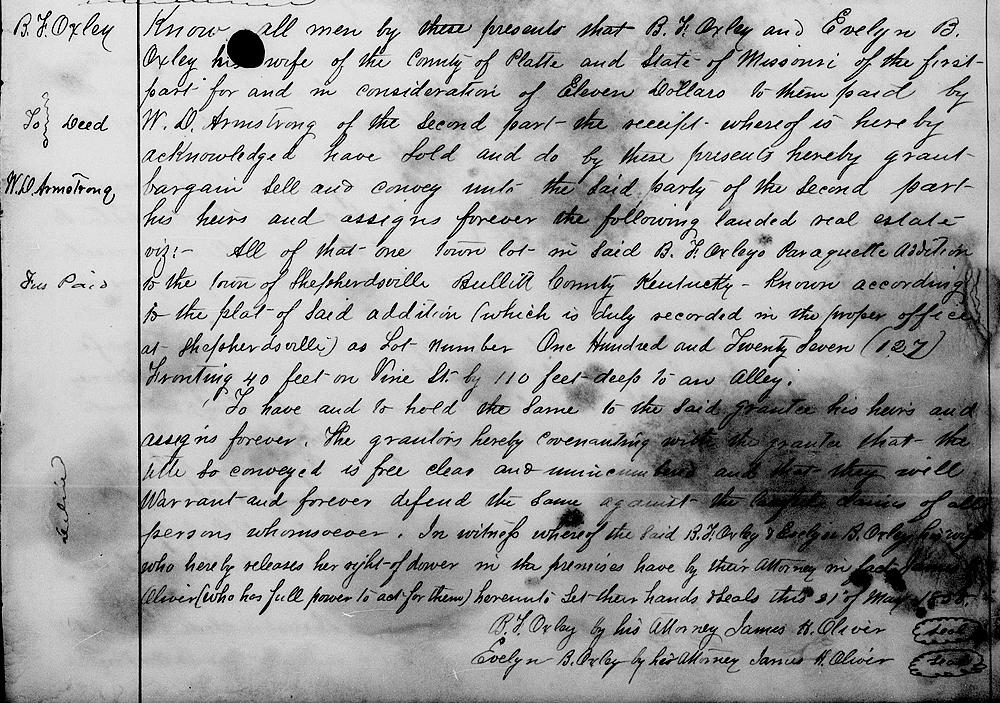 B. F. Oxley
To } Deed
W. D. Armstrong
Fees Paid
Know all men by these presents that B. F. Oxley and Evelyn B.
Oxley his wife of the County of Platte and State of Missouri of the first
part for and in consideration of Eleven Dollars to them paid by
W. D. Armstrong of the second part the receipt whereof is hereby
acknowledged have sold and do by these presents hereby grant
bargain sell and convey unto the said party of the second part
his heirs and assigns forever the following landed real estate
viz:- All of that one town lot in said B. F. Oxleys Paraquette Addition
to the town of Shepherdsville Bullitt County Kentucky - Known according
to the plat of said addition (which is duly recorded in the proper office
at Shepherdsville) as Lot Number One Hundred and Twenty Seven (127)
Fronting 40 feet on Vine St. by 110 feet deep to an Alley.
To have and to hold the same to the said grantee his heirs and
assigns forever. The grantors hereby covenanting with the grantee that the
title so conveyed is free clear and unincumbered and that they will
Warrant and forever defend the same against the lawful claims of all
persons whomsoever. In witness whereof the said B. F. Oxley & Evelyn B. Oxley his wife
who hereby releases her right of dower in the premises have by their Attorney in fact James H.
Oliver (who has full power to act for them) hereunto set their hands & seals this 21st of May
B. F. Oxley by his Attorney James H. Oliver (Seal)
Evelyn B. Oxley by his Attorney James H. Oliver (Seal)